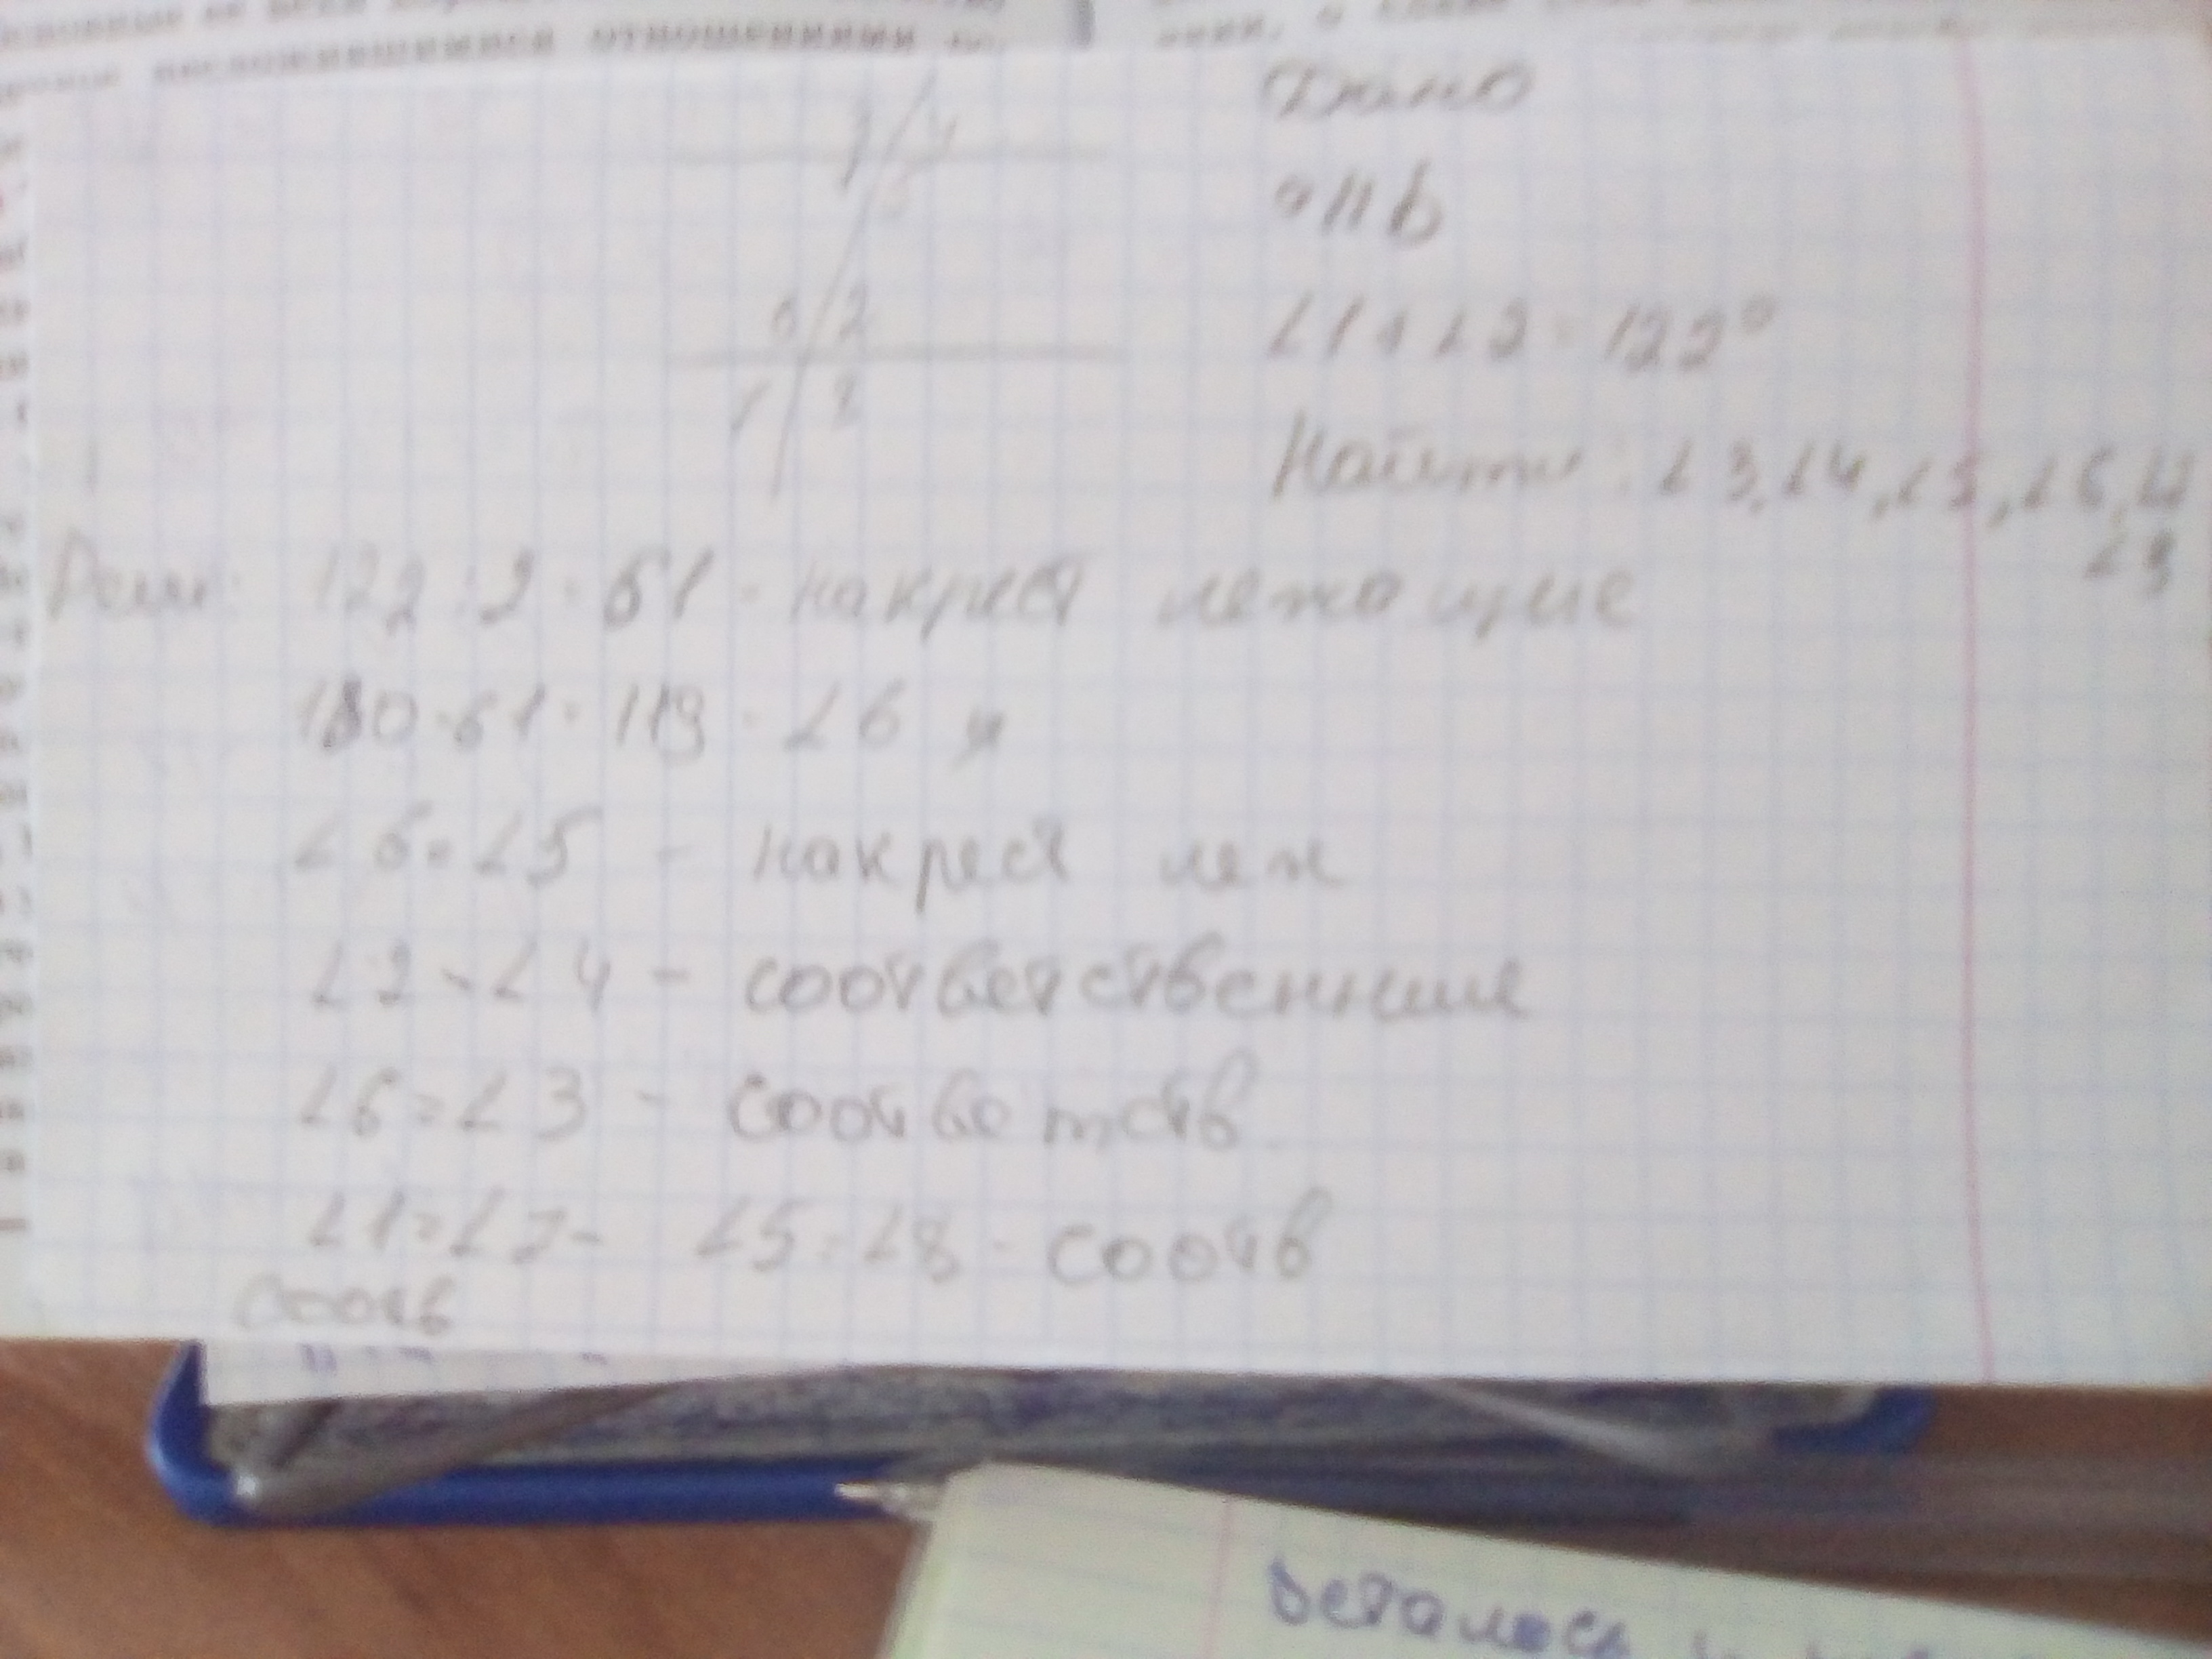 отношениями
3 4
1 5
6 2
7 8
Дано
a || b
∠1 + ∠2 = 122°
Найти: ∠3, ∠4, ∠5, ∠6, ∠7
∠8
Реш: 122 : 2 = 61 - накрест лежащие
180 - 61 = 119 - ∠6 и
∠6 = ∠5 - накрест леж
∠2 = ∠4 - соответственные
∠6 = ∠3 - соответств
∠1 = ∠7 - ∠5 = ∠8 - соотв
соотв
осталось